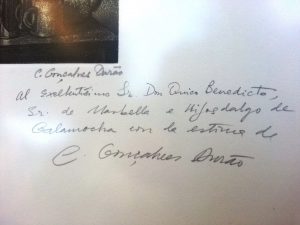 C. Gonçalves Durão
Al Excelentísimo Sr. Don Quico Benedicto,
Sr. de Marbella e Hijosdalgo de
Calamocha con la estima de
C. Gonçalves Durão